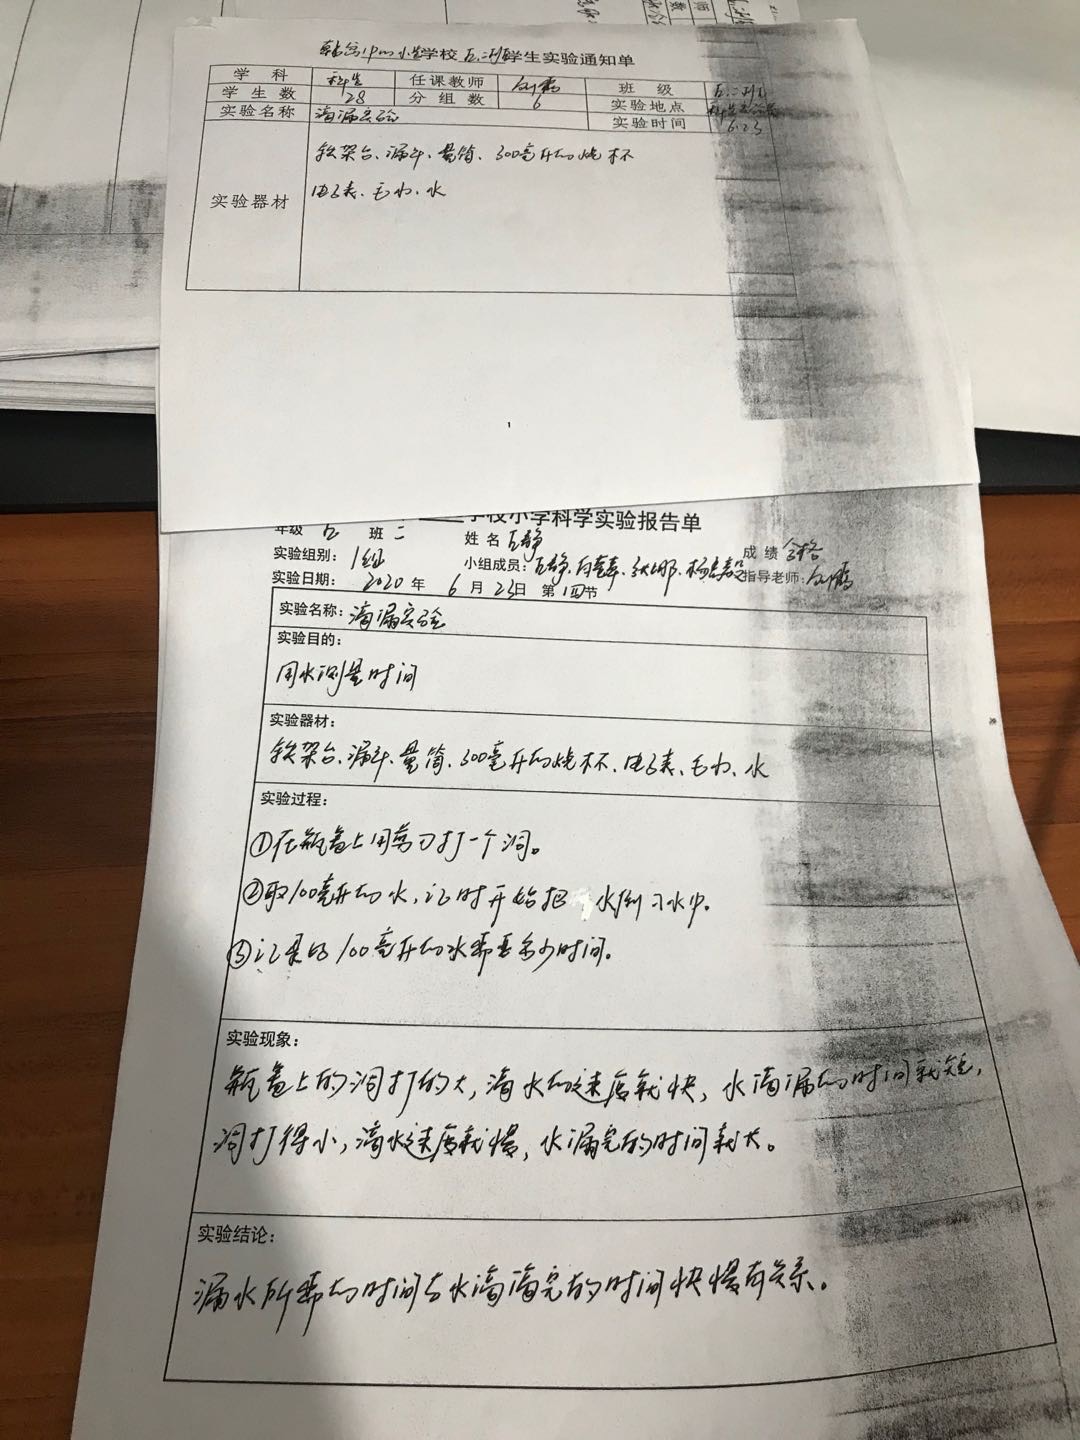 学校 学生实验通知单
学科 科学 任课教师 班级
学生数 28 分组数 6 实验地点
实验名称 滴漏实验 实验时间 6.23
实验器材 铁架台、漏斗、量筒、300毫升的烧杯
电子表、毛巾、水
学校小学科学实验报告单
年级 五 班 二 姓名 成绩 合格
实验组别: 1组 小组成员: 指导老师:
实验日期: 2020年 6月23日 第1四节
实验名称: 滴漏实验
实验目的:
用水测量时间
实验器材:
铁架台、漏斗、量筒、300毫升的烧杯、电子表、毛巾、水
实验过程:
①在瓶盖上用剪刀打一个洞。
②取100毫升的水,记时开始把 水倒 水中。
③记录的100毫升的水需要多少时间。
实验现象:
瓶盖上的洞打的大,滴水的速度就快,水滴漏的时间就短,
洞打得小,滴水速度就慢,水漏完的时间就长。
实验结论:
漏水所需的时间与水滴滴完的时间快慢有关系。